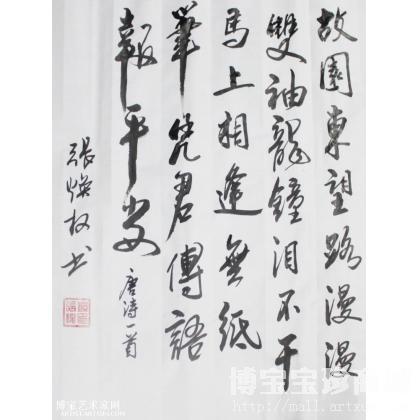 故園東望路漫漫
雙袖龍鐘淚不干
馬上相逢無紙
筆凭君傳語
報平安
唐詩一首
張煥材書
博宝艺术家网
博宝宝珍商城
http://mall.artxun